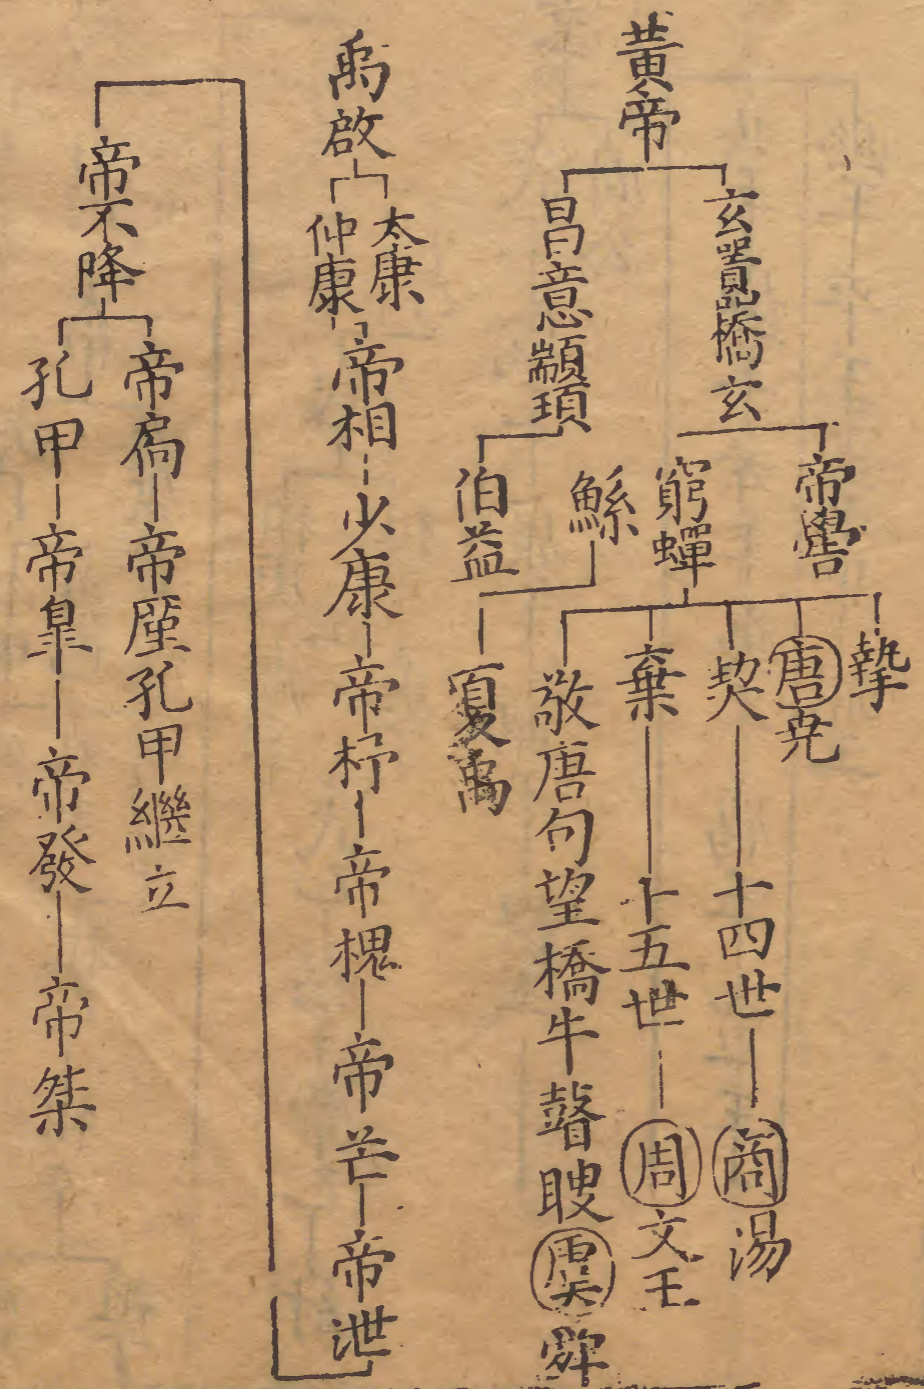 黃帝
玄囂蟜玄
昌意顓頊
帝嚳
窮蟬
鯀
伯益
摯
唐堯
契
十四世
商湯
棄
十五世
周文王
敬唐句望橋牛瞽瞍虞舜
夏禹
禹啟
太康
仲康
帝相
少康
帝杼
帝槐
帝芒
帝泄
帝不降
帝扃
帝厪孔甲繼立
孔甲
帝皐
帝發
帝桀